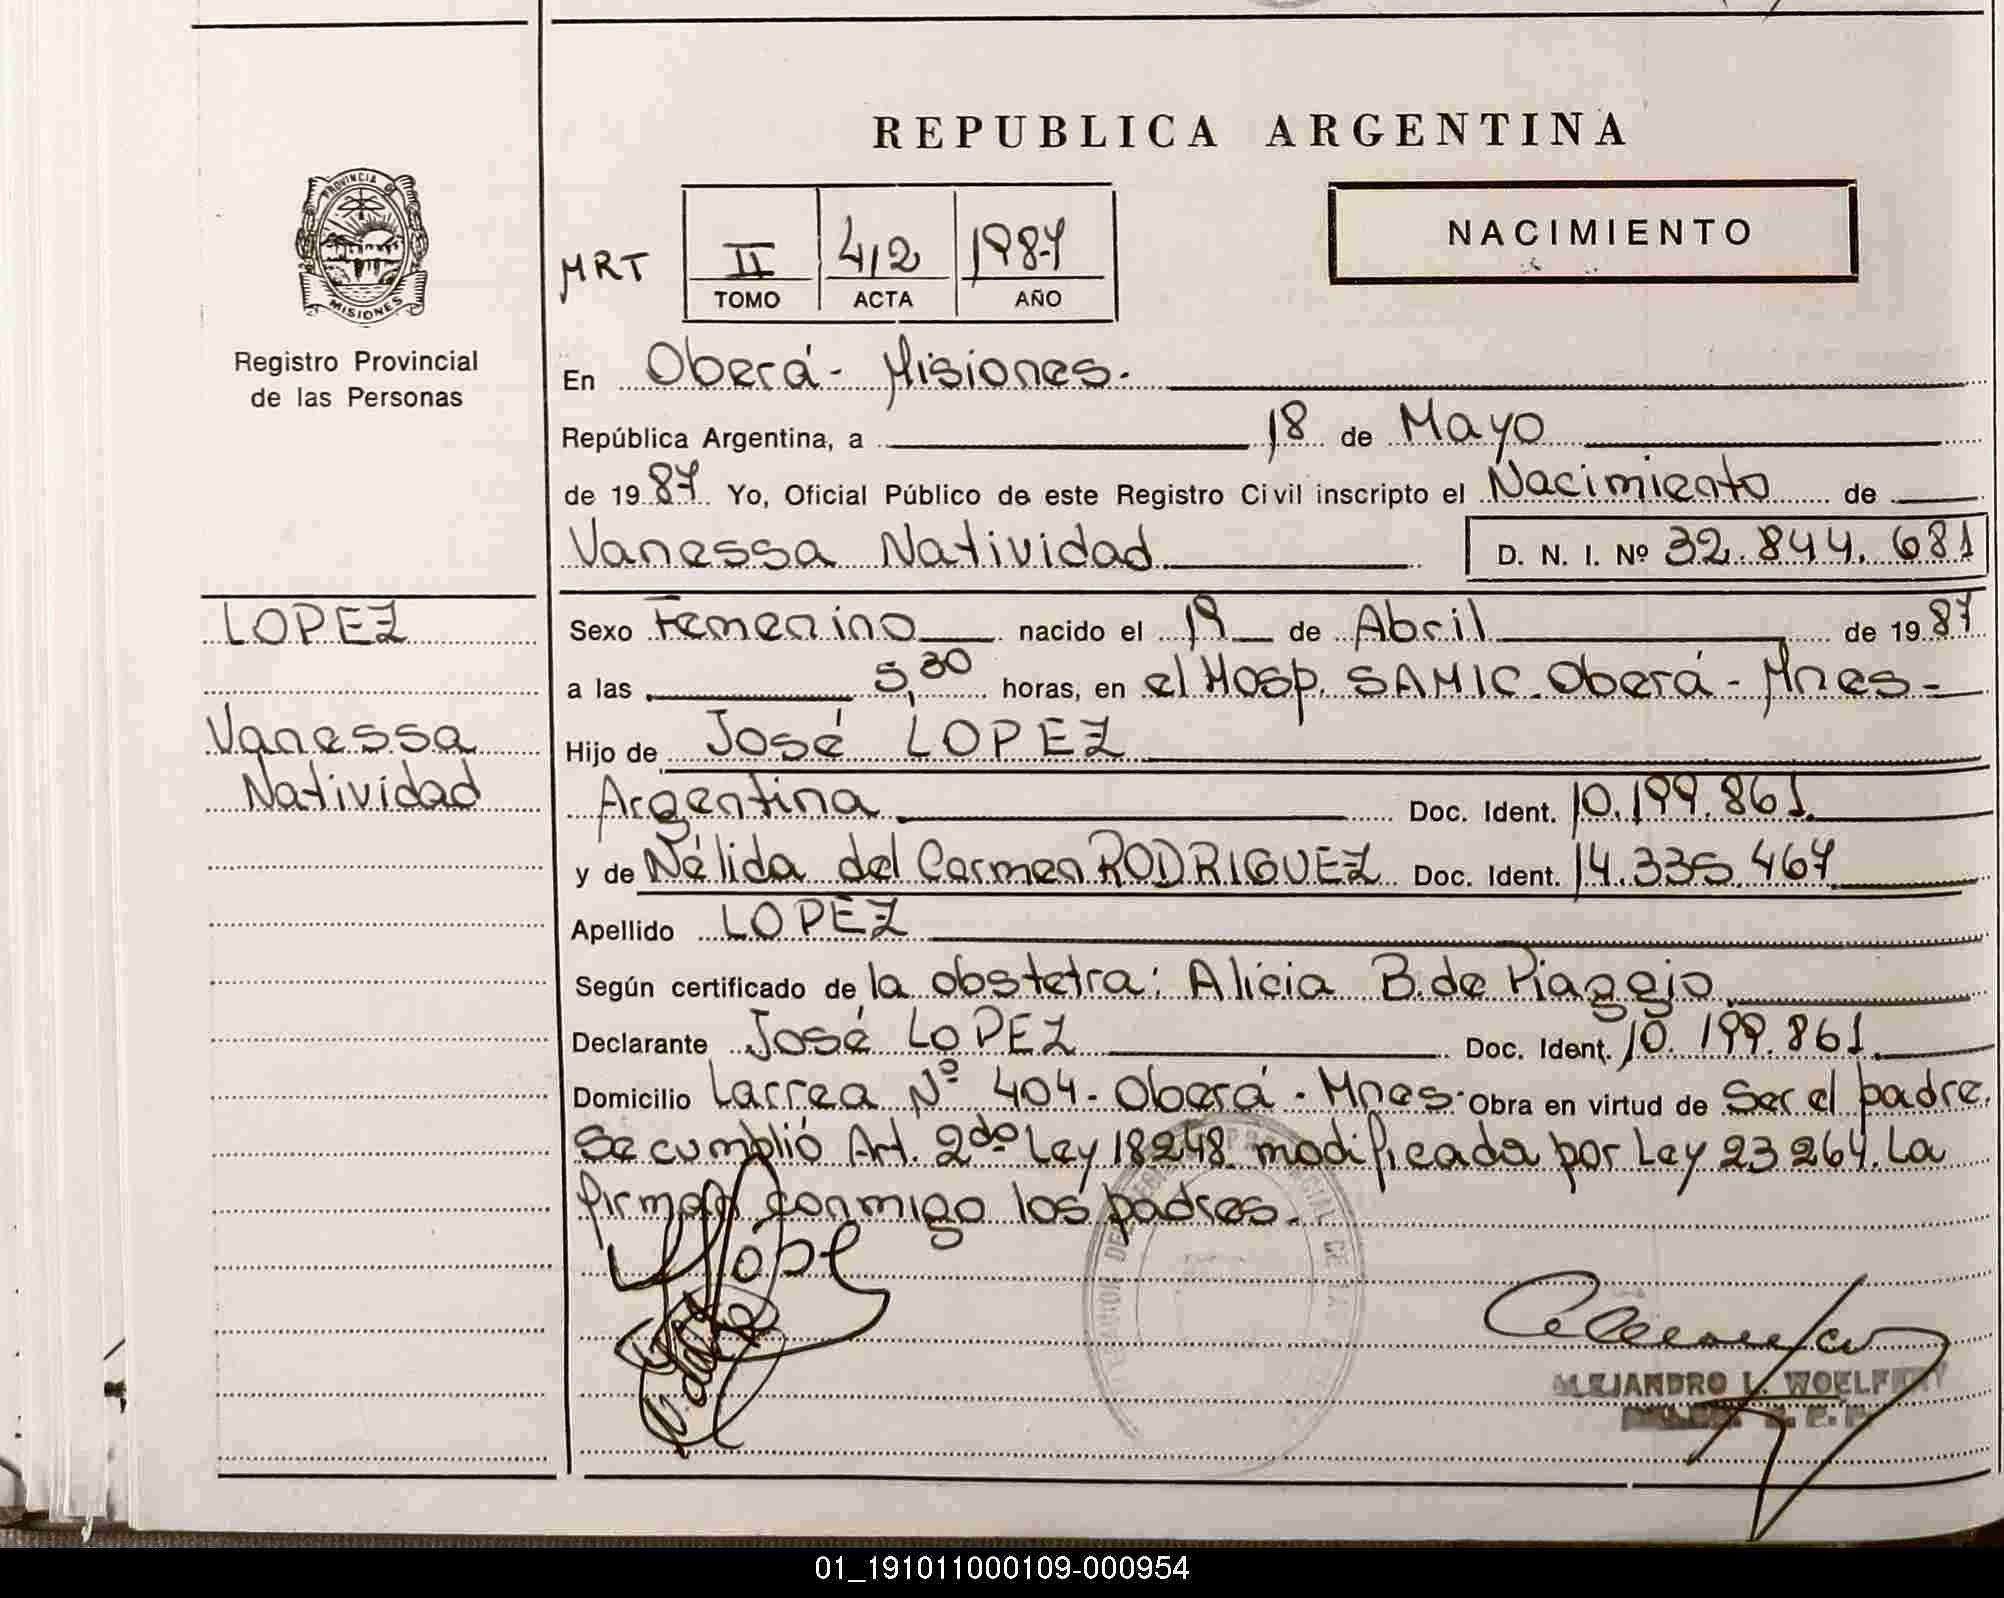 REPUBLICA ARGENTINA
PROVINCIA DE MISIONES
Registro Provincial
de las Personas
MRT
II 412 1987
TOMO ACTA AÑO
NACIMIENTO
En Oberá - Misiones.
República Argentina, a 18 de Mayo
de 1987 Yo, Oficial Público de este Registro Civil inscripto el Nacimiento de
Vanessa Natividad D. N. I. Nº 32.844.681
LOPEZ
Vanessa
Natividad
Sexo Femenino nacido el 19 de Abril de 1987
a las 5,30 horas, en el Hosp. SAMIC. Oberá - Mnes -
Hijo de José LOPEZ
Argentina Doc. Ident. 10.199.861.
y de Nélida del Carmen RODRIGUEZ Doc. Ident. 14.335.467
Apellido LOPEZ
Según certificado de la obstetra: Alicia B. de Piaggio.
Declarante José LOPEZ Doc. Ident. 10.199.861
Domicilio Larrea Nº 404 - Oberá - Mnes. Obra en virtud de Ser el padre.
Se cumplió Art. 2do Ley 18248 modificada por Ley 23264. La
firman conmigo los padres.
ALEJANDRO L.
01_191011000109-000954